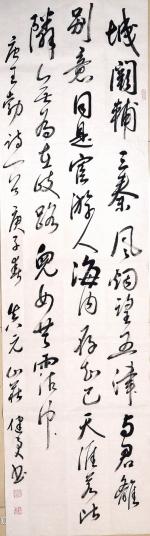 城闕輔三秦風烟望五津与君離
别意同是宦游人海内存知己天涯若比
隣無為在歧路兒女共霑巾
唐王勃詩一首庚子春元山莊健書